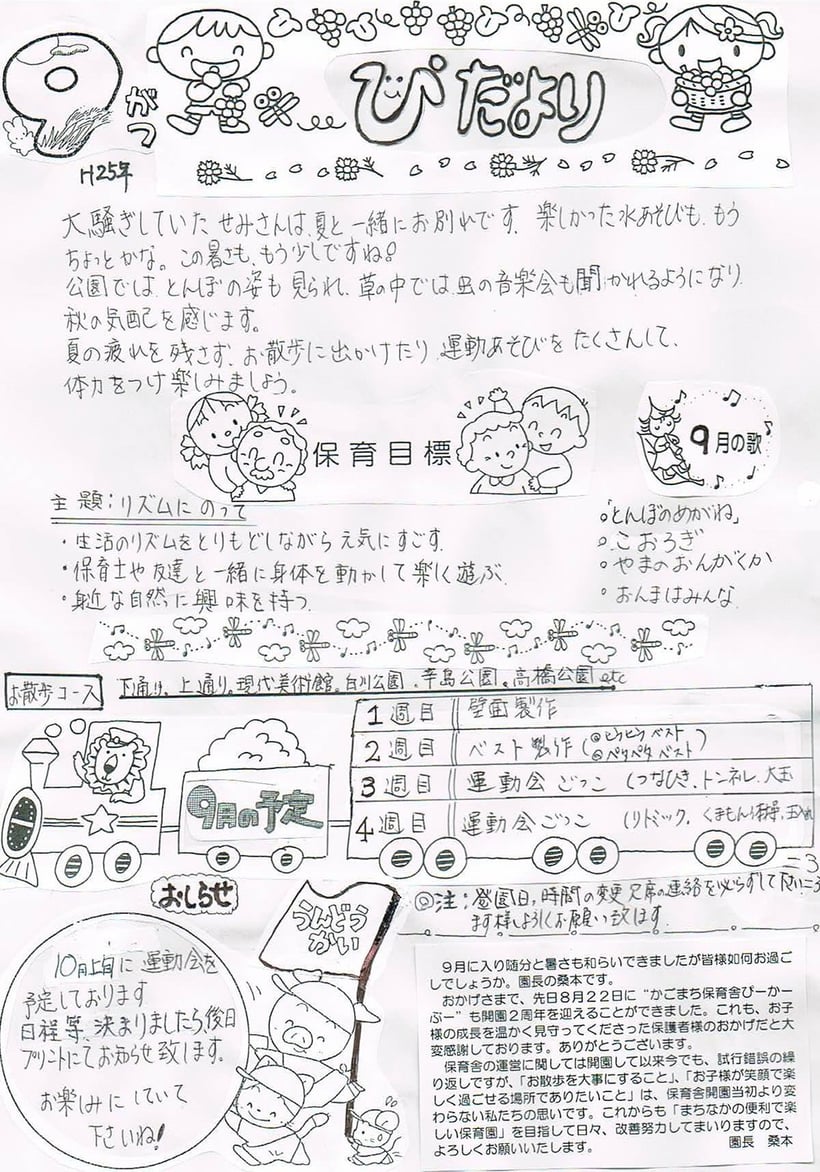 9がつ
ぴだより
H25年
大騒ぎしていた せみさんは、夏と一緒にお別れです。楽しかった水あそびも、もう
ちょっとかな。この暑さも、もう少しですね。
公園では、とんぼの姿も見られ、草の中では、虫の音楽会も聞かれるようになり
秋の気配を感じます。
夏の疲れを残さず、お散歩に出かけたり、運動あそびをたくさんして、
体力をつけ楽しみましょう。
保育目標
9月の歌
主題:リズムにのって
・生活のリズムをとりもどしながら元気にすごす。
・保育士や友達と一緒に身体を動かして楽しく遊ぶ。
・身近な自然に興味を持つ。
。「とんぼのめがね」
。こおろぎ
。やまのおんがくか
。おんまはみんな
お散歩コース
下通り。上通り。現代美術館。白川公園。辛島公園。高橋公園etc
9月の予定
1週目 壁画製作
2週目 ベスト製作(◎ビリビリベスト ◎ペタペタベスト)
3週目 運動会ごっこ(つなひき、トンネル、大玉
4週目 運動会ごっこ(リトミック、くまもん体操、玉入れ
おしらせ
◎注:登園日、時間の変更、欠席の連絡を必らずして下さい
ます様よろしくお願い致します。
うんどう
かい
10月上旬に運動会を
予定しております
日程等、決まりましたら後日
プリントにてお知らせ致します。
お楽しみにしていて
下さいね!
9月に入り随分と暑さも和らいできましたが皆様如何お過ご
しでしょうか。園長の桑本です。
おかげさまで、先日8月22日に“かごまち保育舎ぴーかー
ぶー”も開園2周年を迎えることができました。これも、お子
様の成長を温かく見守ってくださった保護者様のおかげだと大
変感謝しております。ありがとうございます。
保育舎の運営に関しては開園して以来今でも、試行錯誤の繰
り返しですが、「お散歩を大事にすること」、「お子様が笑顔で楽
しく過ごせる場所でありたいこと」は、保育舎開園当初より変
わらない私たちの思いです。これからも「まちなかの便利で楽
しい保育園」を目指して日々、改善努力してまいりますので、
よろしくお願いいたします。
園長 桑本